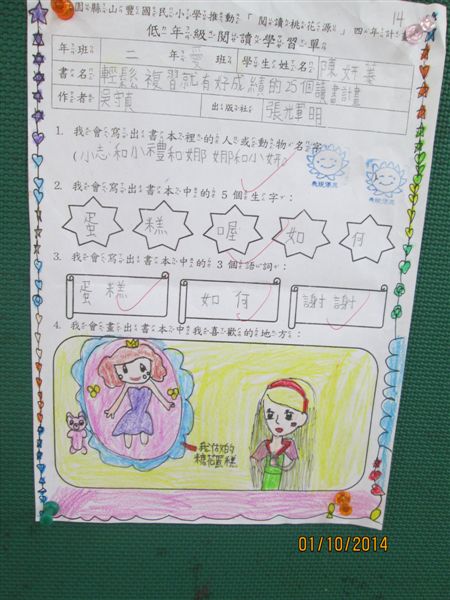 園縣山豐國民小學推動「閱讀桃花源」四年計畫
14
低年級閱讀學習單
年班 二年愛班 學生姓名 陳妍蓁
書名 輕鬆複習就有好成績的25個讀書計畫
作者 吳守貞 出版社 張光軍明
1. 我會寫出書本裡的人或動物名字
(小志和小禮和娜娜和小妍)
表現漂亮
表現漂亮
2. 我會寫出書本中的5個生字:
蛋 糕 喔 如 何
3. 我會寫出書本中的3個語詞:
蛋糕 如何 謝謝
4. 我會畫出書本中我喜歡的地方:
我做的
糖花蛋糕
01/10/2014